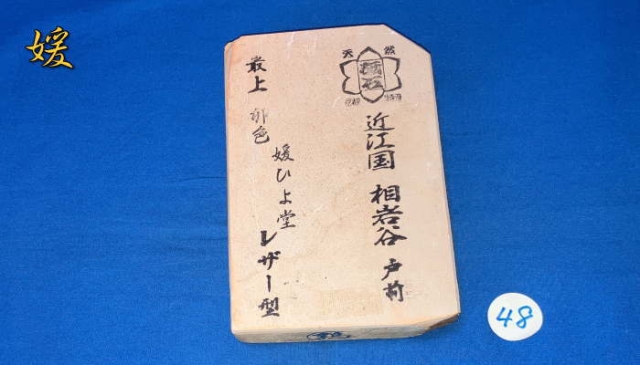 媛
天 然
砥石
近江国 相岩谷 戸前
最上 卵色
媛ひよ堂
レザー型
48